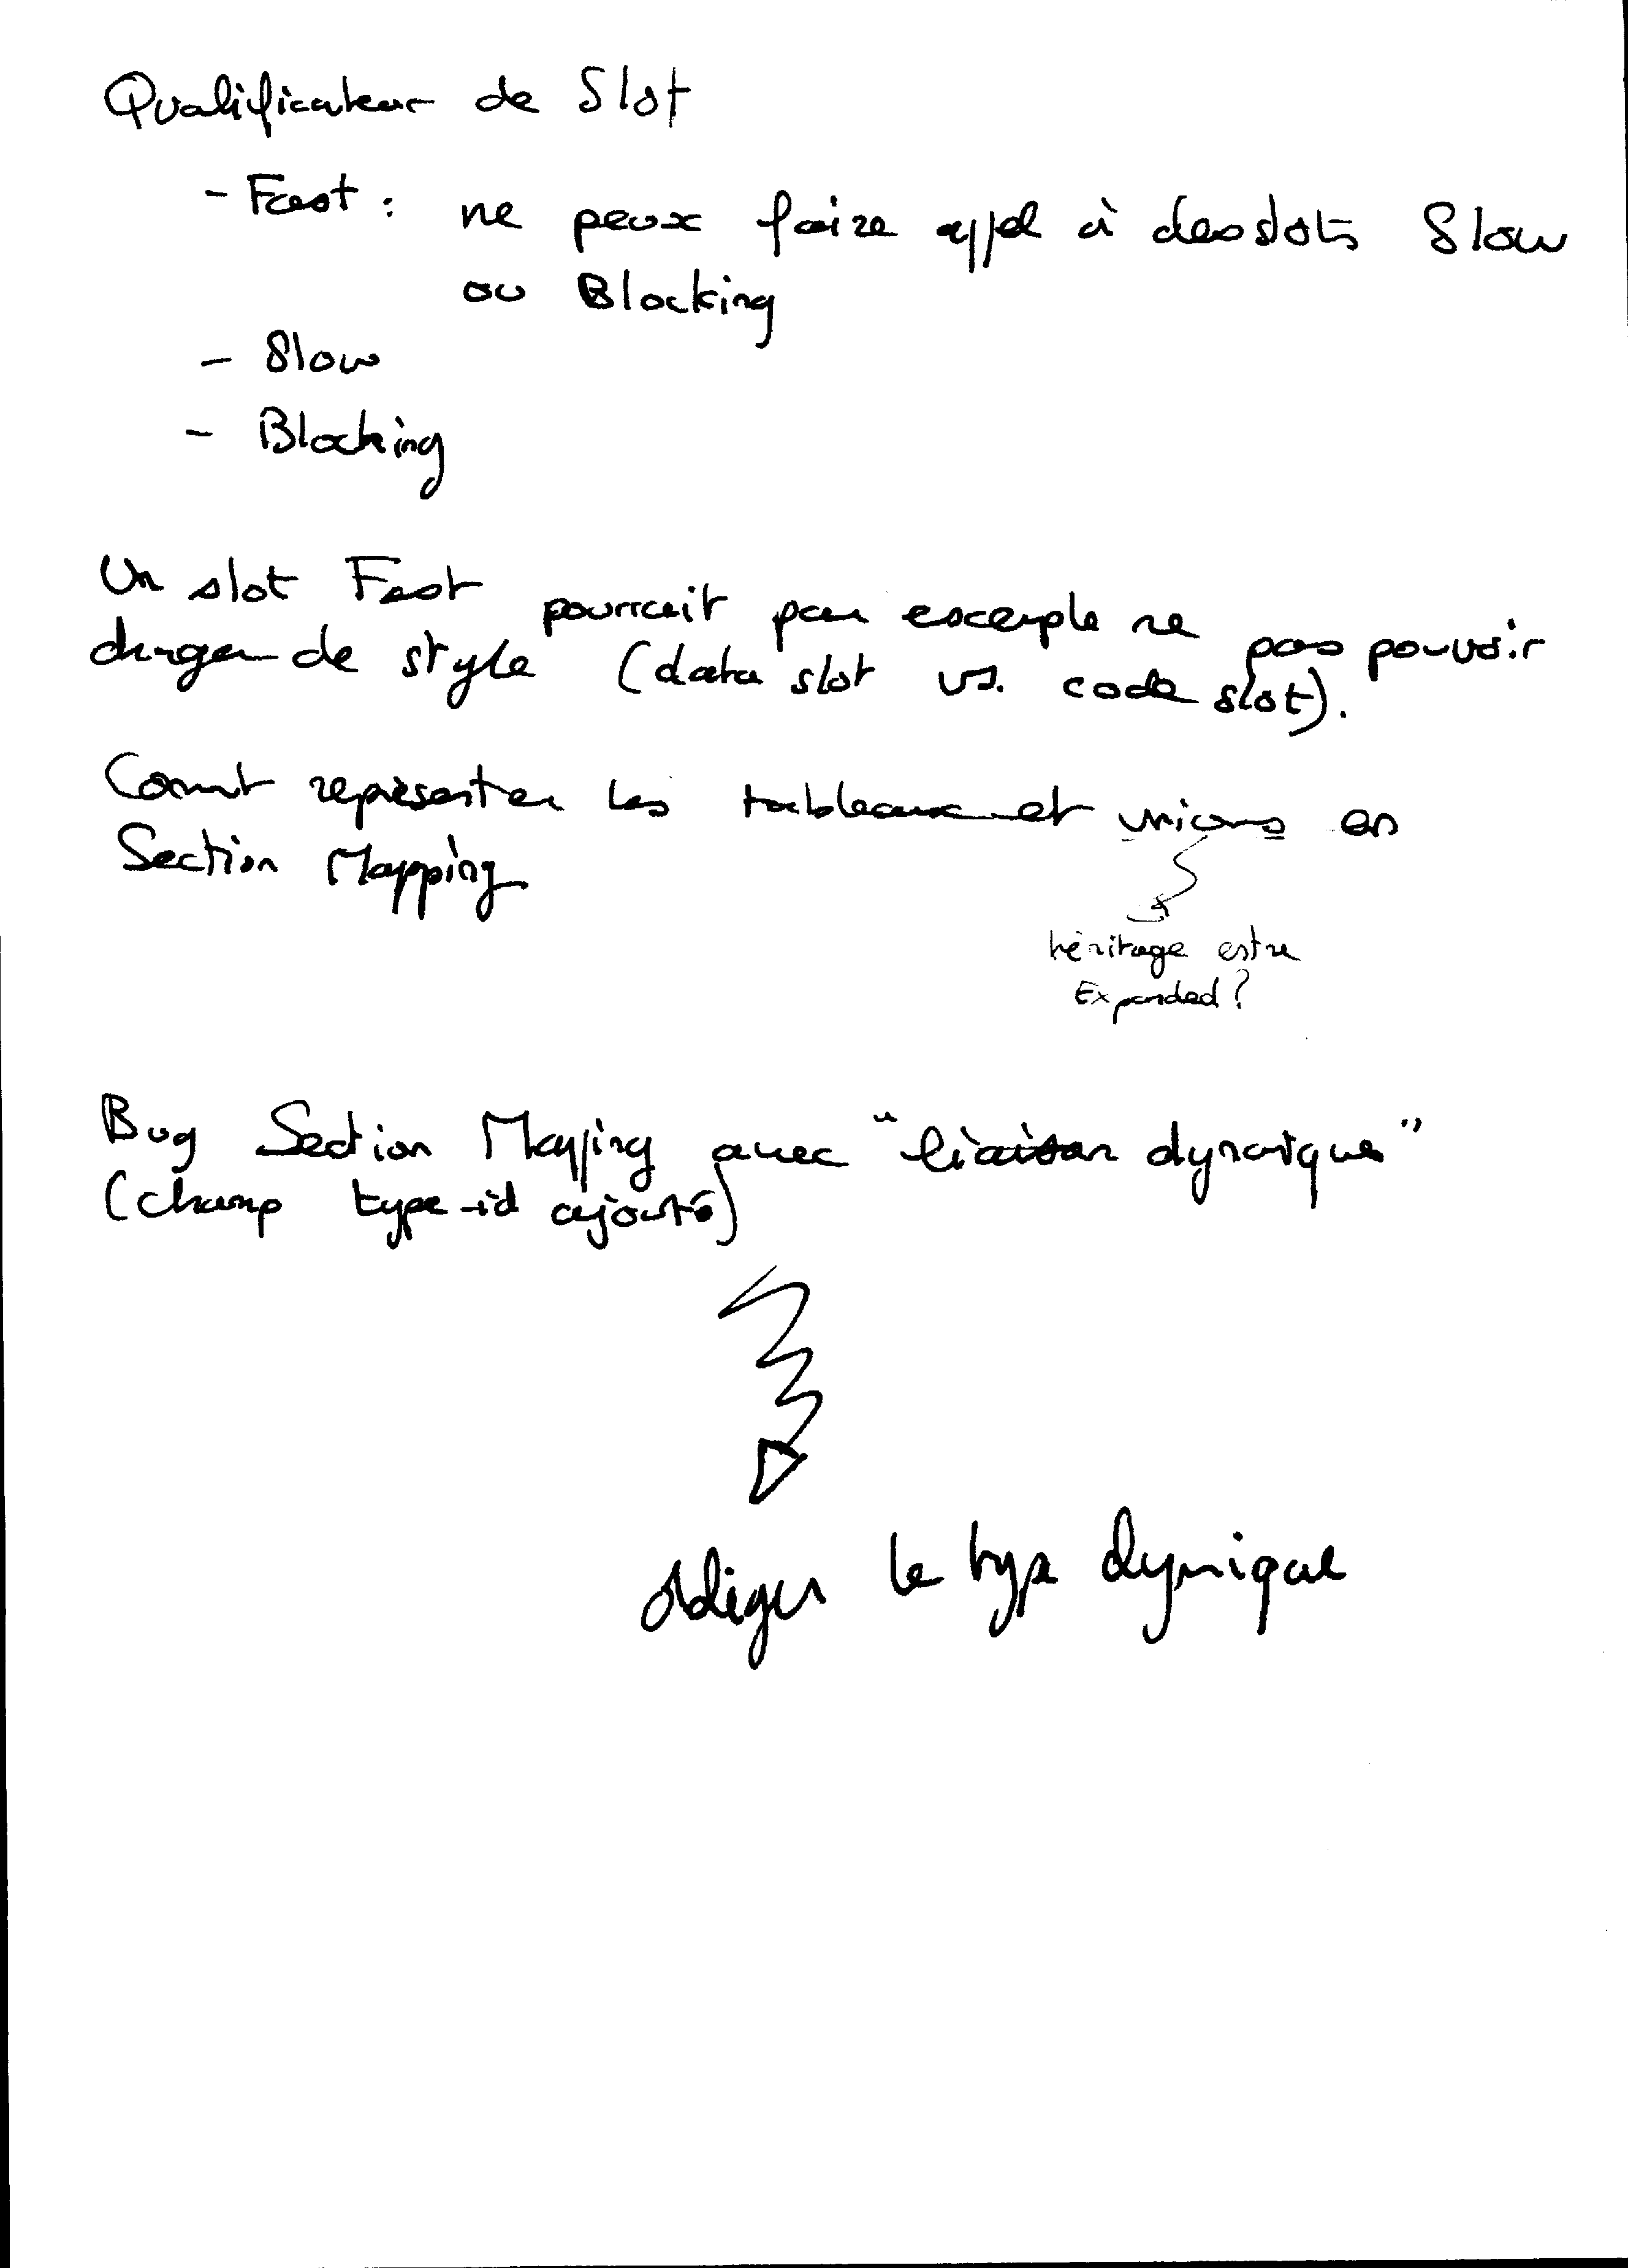 Qualificateur de Slot
- Fast : ne peux faire appel à des slots Slow
ou Blocking
- Slow
- Blocking
Un slot Fast pourrait par exemple ne pas pouvoir
changer de style (data slot vs. code slot).
Comment représenter les tableaux et unions en
Section Mapping
héritage entre
Expanded ?
Bug Section Mapping avec "liaison dynamique"
(champ type-id ajouté)
obliger le type dynamique